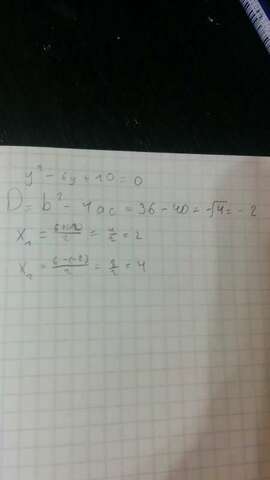 y² - 6y + 10 = 0
D = b² - 4ac = 36 - 40 = -√4 = -2
x₁ = (6+(-2))/2 = 4/2 = 2
x₂ = (6-(-2))/2 = 8/2 = 4